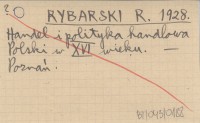 ? O RYBARSKI R. 1928.
Handel i polityka handlowa
Polski w XVI wieku. —
Poznań.